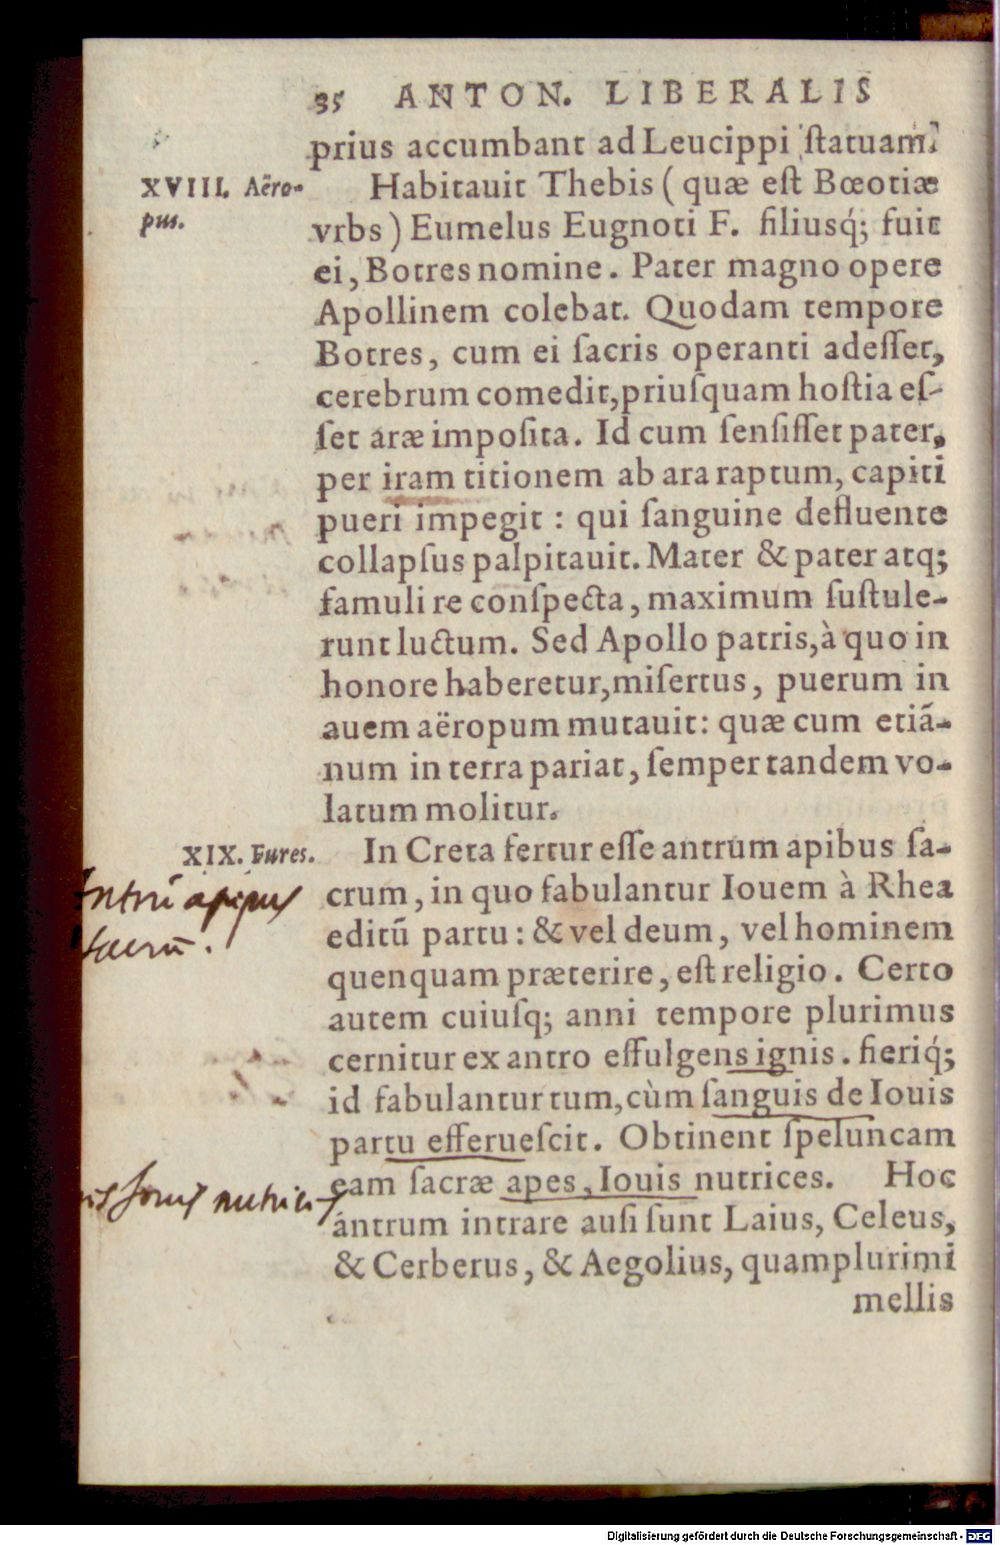 35 ANTON. LIBERALIS
prius accumbant ad Leucippi ſtatuam.
XVIII. Aëro-
pus.
Habitauit Thebis ( quæ eſt Bœotiæ
vrbs ) Eumelus Eugnoti F. filiusq́; fuit
ei, Botres nomine. Pater magno opere
Apollinem colebat. Quodam tempore
Botres, cum ei ſacris operanti adeſſet,
cerebrum comedit, priuſquam hoſtia eſ-
ſet aræ impoſita. Id cum ſenſiſſet pater,
per iram titionem ab ara raptum, capiti
pueri impegit : qui ſanguine defluente
collapſus palpitauit. Mater & pater atq;
famuli re conſpecta, maximum ſuſtule-
runt luctum. Sed Apollo patris, à quo in
honore haberetur, miſertus, puerum in
auem aëropum mutauit: quæ cum etiã-
num in terra pariat, ſemper tandem vo-
latum molitur.
XIX. Fures.
In Creta fertur eſſe antrum apibus ſa-
crum, in quo fabulantur Iouem à Rhea
editũ partu : & vel deum, vel hominem
quenquam præterire, eſt religio. Certo
autem cuiuſq; anni tempore plurimus
cernitur ex antro effulgens ignis. fieriq́;
id fabulantur tum, cùm ſanguis de Iouis
partu efferueſcit. Obtinent ſpeluncam
eam ſacræ apes, Iouis nutrices. Hoc
antrum intrare auſi ſunt Laius, Celeus,
& Cerberus, & Aegolius, quamplurimi
mellis
Antrũ apipus
sacrũ.
Jouis nutrices
Digitalisierung gefördert durch die Deutsche Forschungsgemeinschaft - DFG